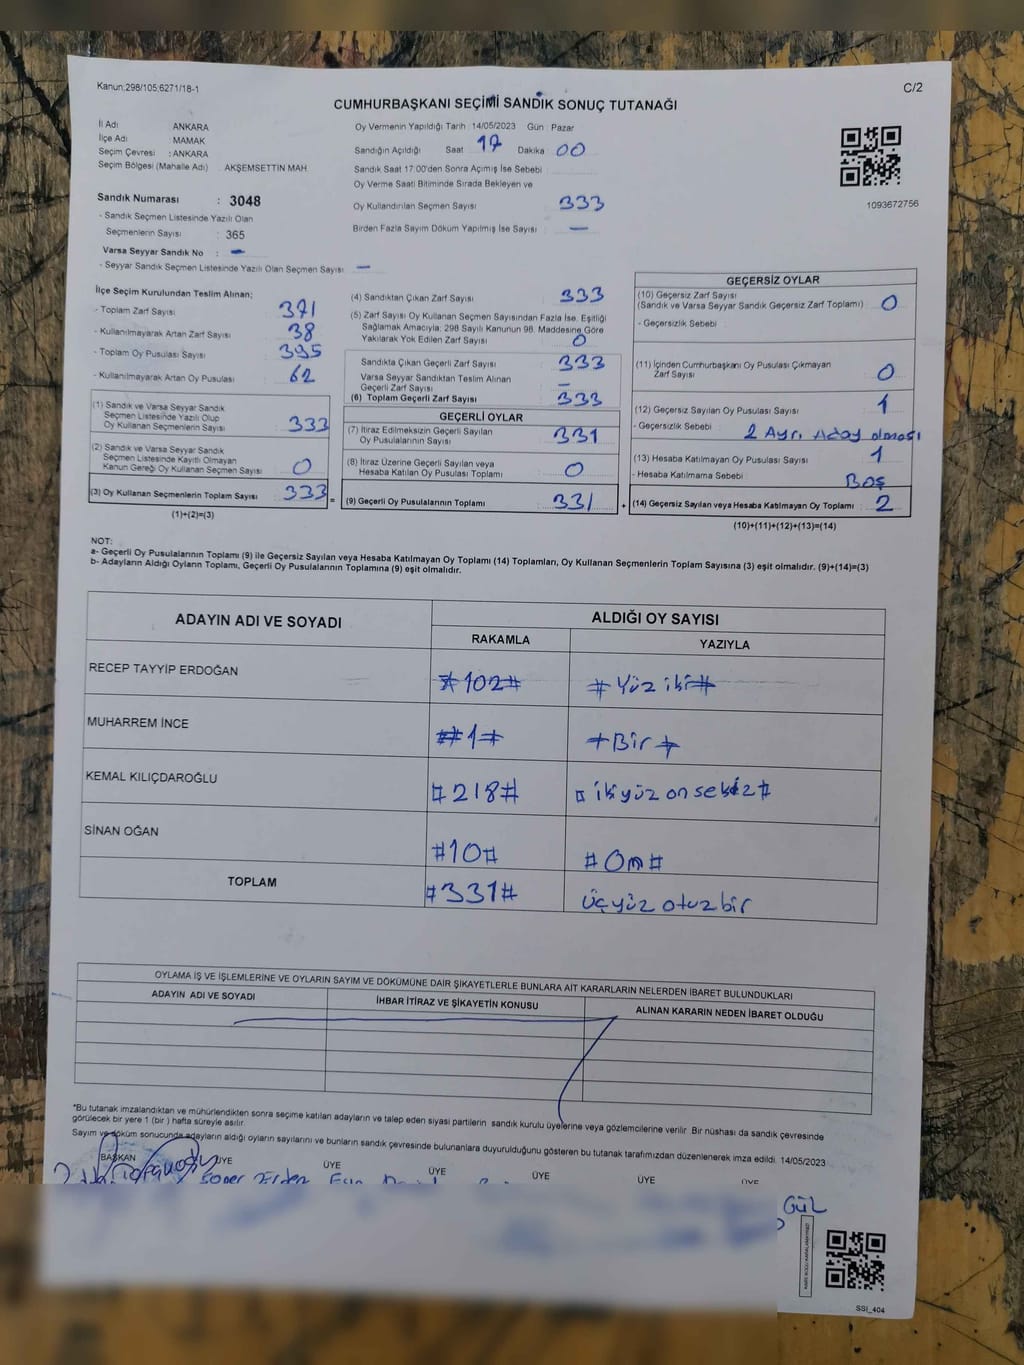 Kanun:298/105;6271/18-1
C/2
CUMHURBAŞKANI SEÇİMİ SANDIK SONUÇ TUTANAĞI
İl Adı : ANKARA
İlçe Adı : MAMAK
Seçim Çevresi : ANKARA
Seçim Bölgesi (Mahalle Adı) : AKŞEMSETTİN MAH
Sandık Numarası : 3048
- Sandık Seçmen Listesinde Yazılı Olan
Seçmenlerin Sayısı : 365
Varsa Seyyar Sandık No : -
- Seyyar Sandık Seçmen Listesinde Yazılı Olan Seçmen Sayısı: -
Oy Vermenin Yapıldığı Tarih :14/05/2023 Gün : Pazar
Sandığın Açıldığı Saat 17 Dakika 00
Sandık Saat 17:00'den Sonra Açımış İse Sebebi :
Oy Verme Saati Bitiminde Sırada Bekleyen ve
Oy Kullandırılan Seçmen Sayısı 333
Birden Fazla Sayım Döküm Yapılmış İse Sayısı : -
1093672756
İlçe Seçim Kurulundan Teslim Alınan;
- Toplam Zarf Sayısı : 371
- Kullanılmayarak Artan Zarf Sayısı : 38
- Toplam Oy Pusulası Sayısı : 395
- Kullanılmayarak Artan Oy Pusulası : 62
(1) Sandık ve Varsa Seyyar Sandık
Seçmen Listesinde Yazılı Olup
Oy Kullanan Seçmenlerin Sayısı : 333
(2) Sandık ve Varsa Seyyar Sandık
Seçmen Listesinde Kayıtlı Olmayan
Kanun Gereği Oy Kullanan Seçmen Sayısı : 0
(3) Oy Kullanan Seçmenlerin Toplam Sayısı : 333 =
(1)+(2)=(3)
(4) Sandıktan Çıkan Zarf Sayısı : 333
(5) Zarf Sayısı Oy Kullanan Seçmen Sayısından Fazla İse, Eşitliği
Sağlamak Amacıyla; 298 Sayılı Kanunun 98. Maddesine Göre
Yakılarak Yok Edilen Zarf Sayısı : 0
Sandıkta Çıkan Geçerli Zarf Sayısı : 333
Varsa Seyyar Sandıktan Teslim Alınan
Geçerli Zarf Sayısı : -
(6) Toplam Geçerli Zarf Sayısı : 333
GEÇERLİ OYLAR
(7) İtiraz Edilmeksizin Geçerli Sayılan
Oy Pusulalarının Sayısı : 331
(8) İtiraz Üzerine Geçerli Sayılan veya
Hesaba Katılan Oy Pusulası Toplamı : 0
(9) Geçerli Oy Pusulalarının Toplamı : 331 +
GEÇERSİZ OYLAR
(10) Geçersiz Zarf Sayısı
(Sandık ve Varsa Seyyar Sandık Geçersiz Zarf Toplamı) : 0
- Geçersizlik Sebebi :
(11) İçinden Cumhurbaşkanı Oy Pusulası Çıkmayan
Zarf Sayısı : 0
(12) Geçersiz Sayılan Oy Pusulası Sayısı : 1
- Geçersizlik Sebebi : 2 Ayrı Aday olması
(13) Hesaba Katılmayan Oy Pusulası Sayısı : 1
- Hesaba Katılmama Sebebi : Boş
(14) Geçersiz Sayılan veya Hesaba Katılmayan Oy Toplamı : 2
(10)+(11)+(12)+(13)=(14)
NOT:
a- Geçerli Oy Pusulalarının Toplamı (9) ile Geçersiz Sayılan veya Hesaba Katılmayan Oy Toplamı (14) Toplamları, Oy Kullanan Seçmenlerin Toplam Sayısına (3) eşit olmalıdır. (9)+(14)=(3)
b- Adayların Aldığı Oyların Toplamı, Geçerli Oy Pusulalarının Toplamına (9) eşit olmalıdır.
ADAYIN ADI VE SOYADI
ALDIĞI OY SAYISI
RAKAMLA YAZIYLA
RECEP TAYYİP ERDOĞAN #102# # Yüz iki #
MUHARREM İNCE ##1# # Bir #
KEMAL KILIÇDAROĞLU #218# # ikiyüz on sekiz #
SİNAN OĞAN #10# # On #
TOPLAM #331# Üçyüz otuz bir
OYLAMA İŞ VE İŞLEMLERİNE VE OYLARIN SAYIM VE DÖKÜMÜNE DAİR ŞİKAYETLERLE BUNLARA AİT KARARLARIN NELERDEN İBARET BULUNDUKLARI
ADAYIN ADI VE SOYADI İHBAR İTİRAZ VE ŞİKAYETİN KONUSU ALINAN KARARIN NEDEN İBARET OLDUĞU
*Bu tutanak imzalandıktan ve mühürlendikten sonra seçime katılan adayların ve talep eden siyasi partilerin sandık kurulu üyelerine veya gözlemcilerine verilir. Bir nüshası da sandık çevresinde
görülecek bir yere 1 (bir ) hafta süreyle asılır.
Sayım ve döküm sonucunda adayların aldığı oyların sayılarını ve bunların sandık çevresinde bulunanlara duyurulduğunu gösteren bu tutanak tarafımızdan düzenlenerek imza edildi. 14/05/2023
BAŞKAN ÜYE ÜYE ÜYE ÜYE ÜYE ÜYE
GÜL
SSI_404